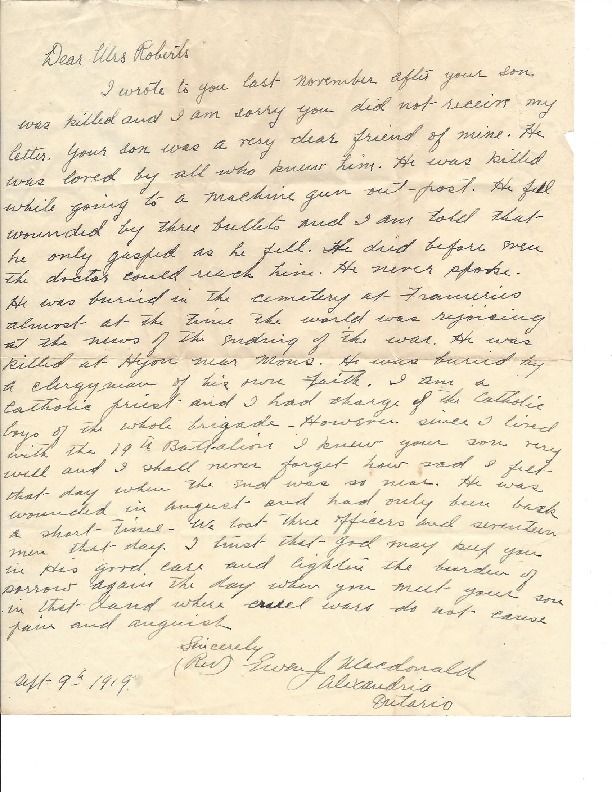 Dear Mrs Roberts
I wrote to you last november after your son
was killed and I am sorry you did not receive my
letter. Your son was a very dear friend of mine. He
was loved by all who knew him. He was killed
while going to a machine gun out-post. He fell
wounded by three bullets and I am told that
he only gasped as he fell. He died before even
the doctor could reach him. He never spoke.
He was buried in the cemetery at Frameries
almost at the time the world was rejoicing
at the news of the ending of the war. He was
killed at Hyon near Mons. He was buried by
a clergyman of his own faith. I am a
Catholic priest and I had charge of the Catholic
boys of the whole brigade - However since I lived
with the 19th Battalion I knew your son very
well and I shall never forget how sad I felt
that day when the end was so near. He was
wounded in august and had only been back
a short time - We lost three officers and seventeen
men that day. I trust that God may keep you
in His good care and lighten the burden of
sorrow again the day when you meet your son
in that Land where cruel wars do not cause
pain and anguish
Sincerely
(Rev) Ewen J Macdonald
Alexandria
Ontario
Sept 9th 1919.